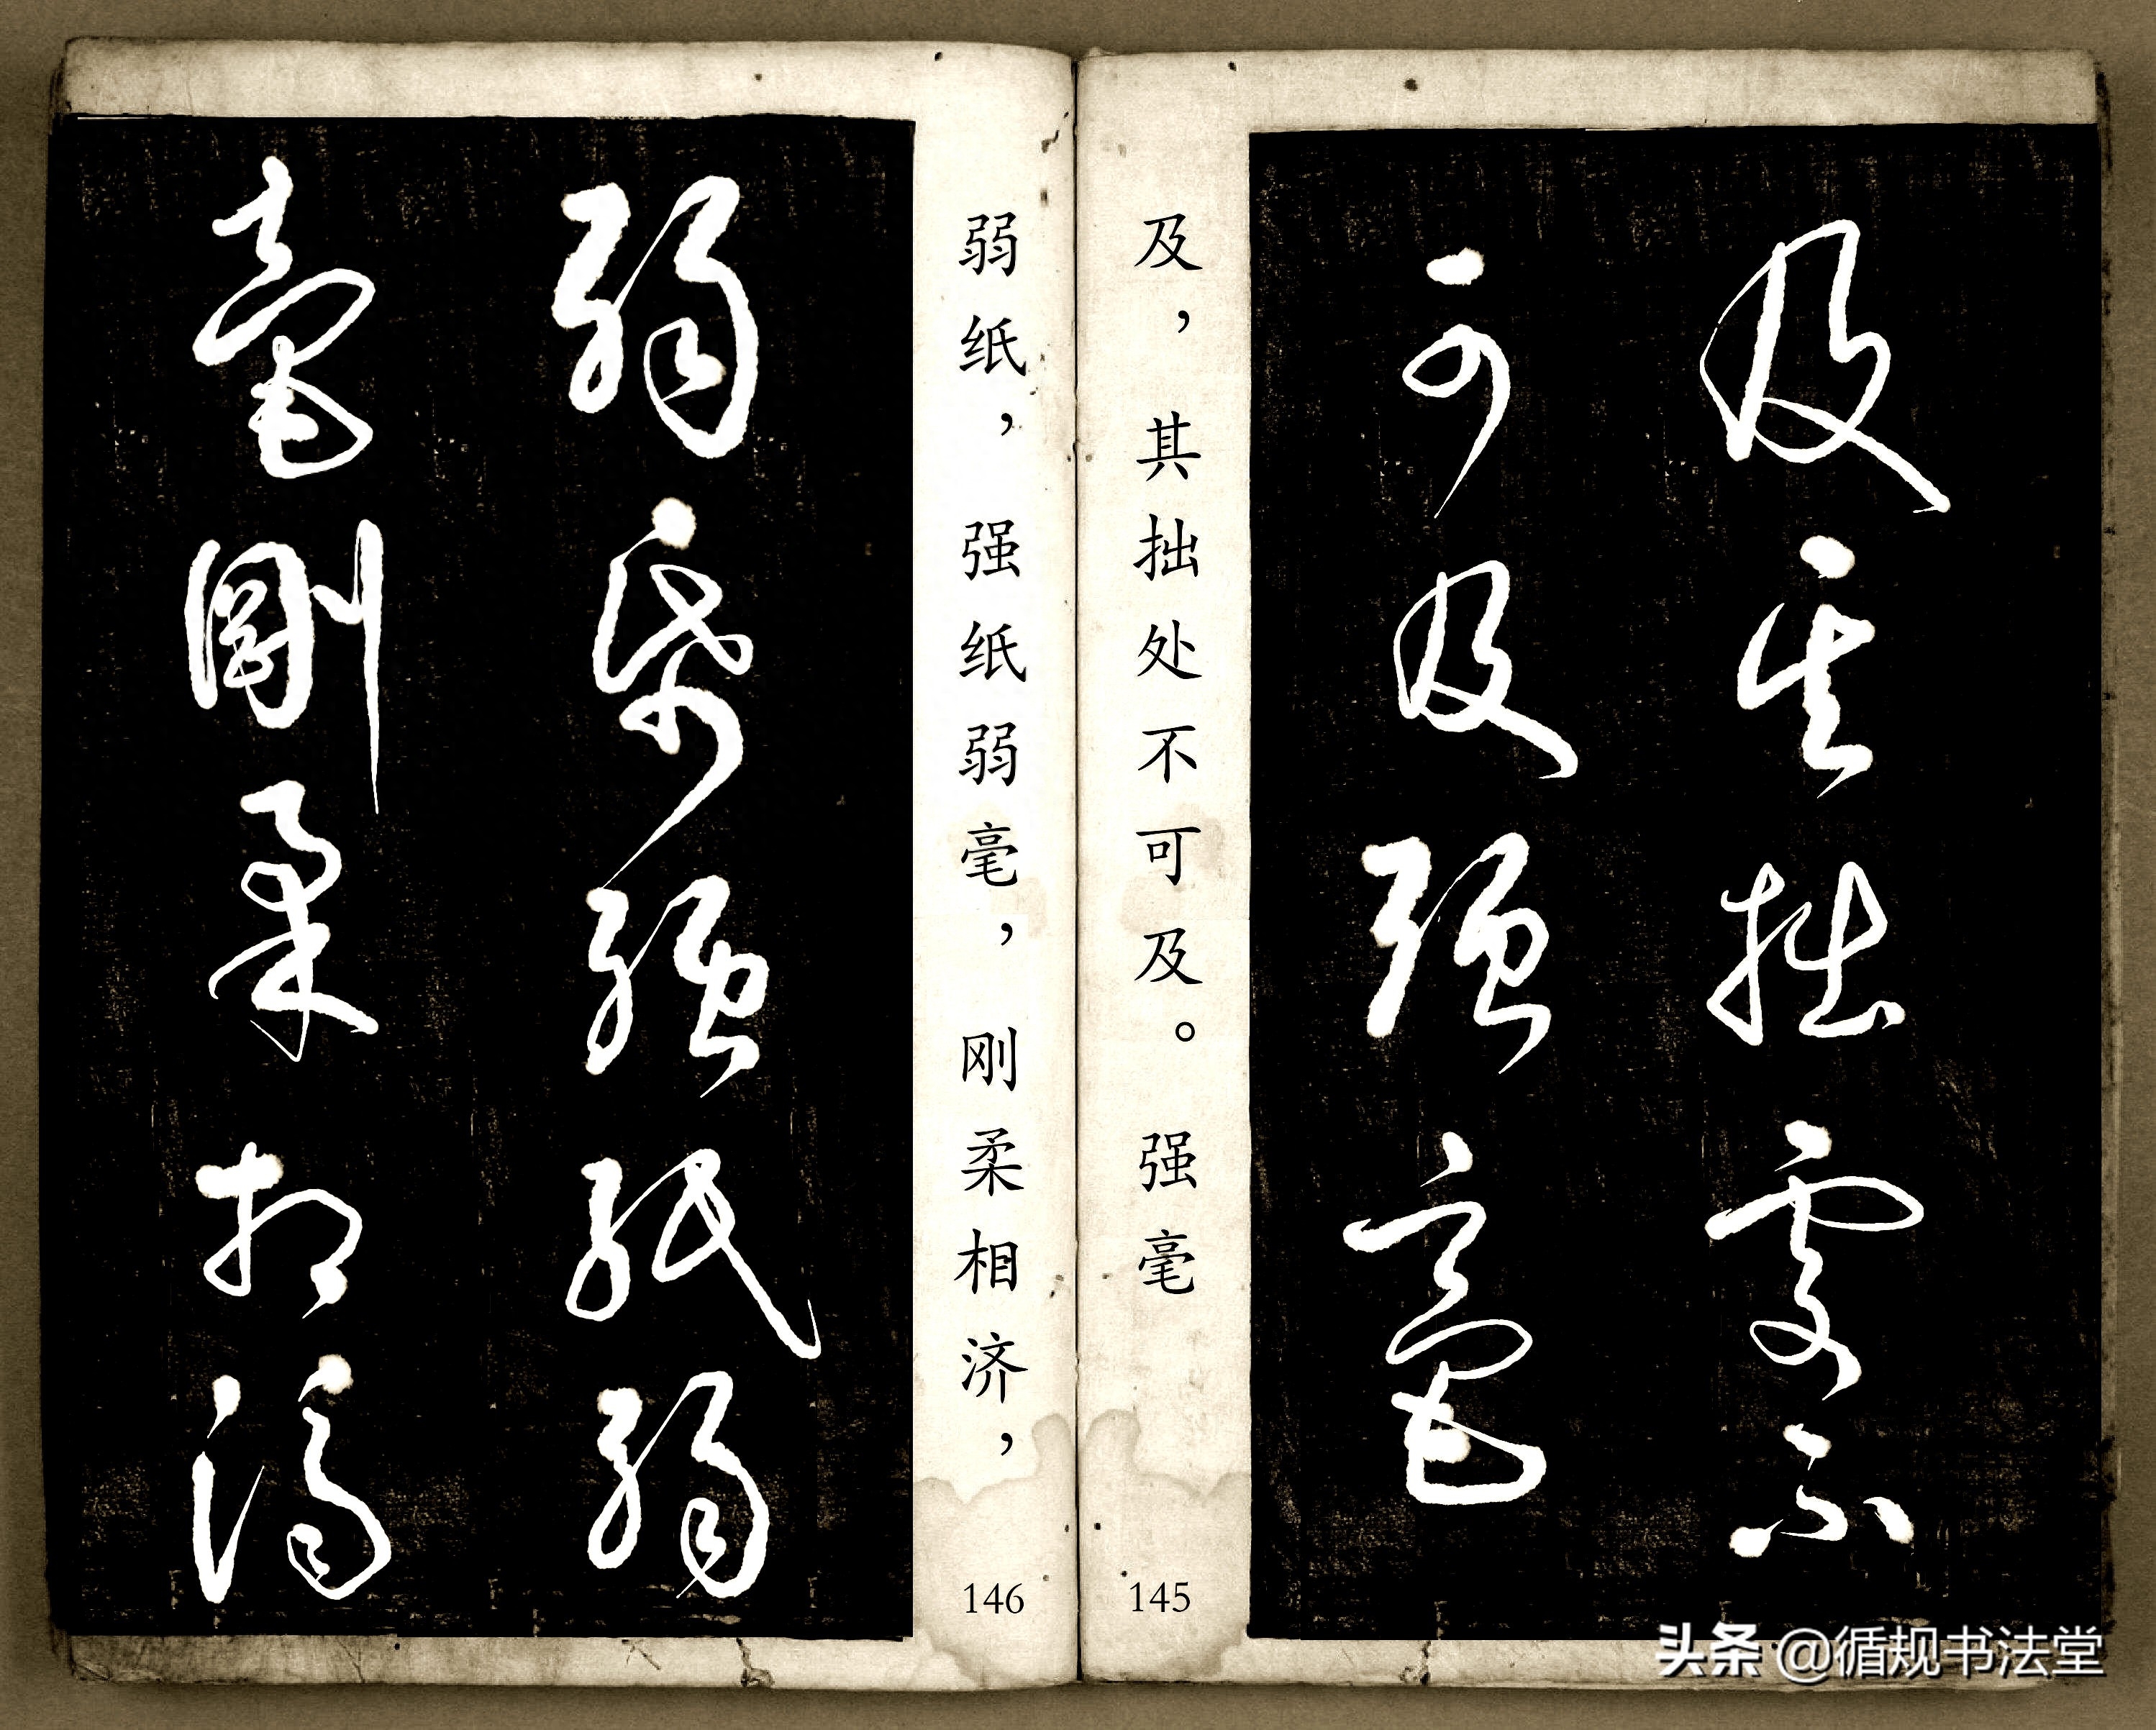 及其拙处不
可及强毫
及，其拙处不可及。强毫
145
弱纸强纸弱
毫刚柔相济
弱纸，强纸弱毫，刚柔相济，
146
头条 @循规书法堂